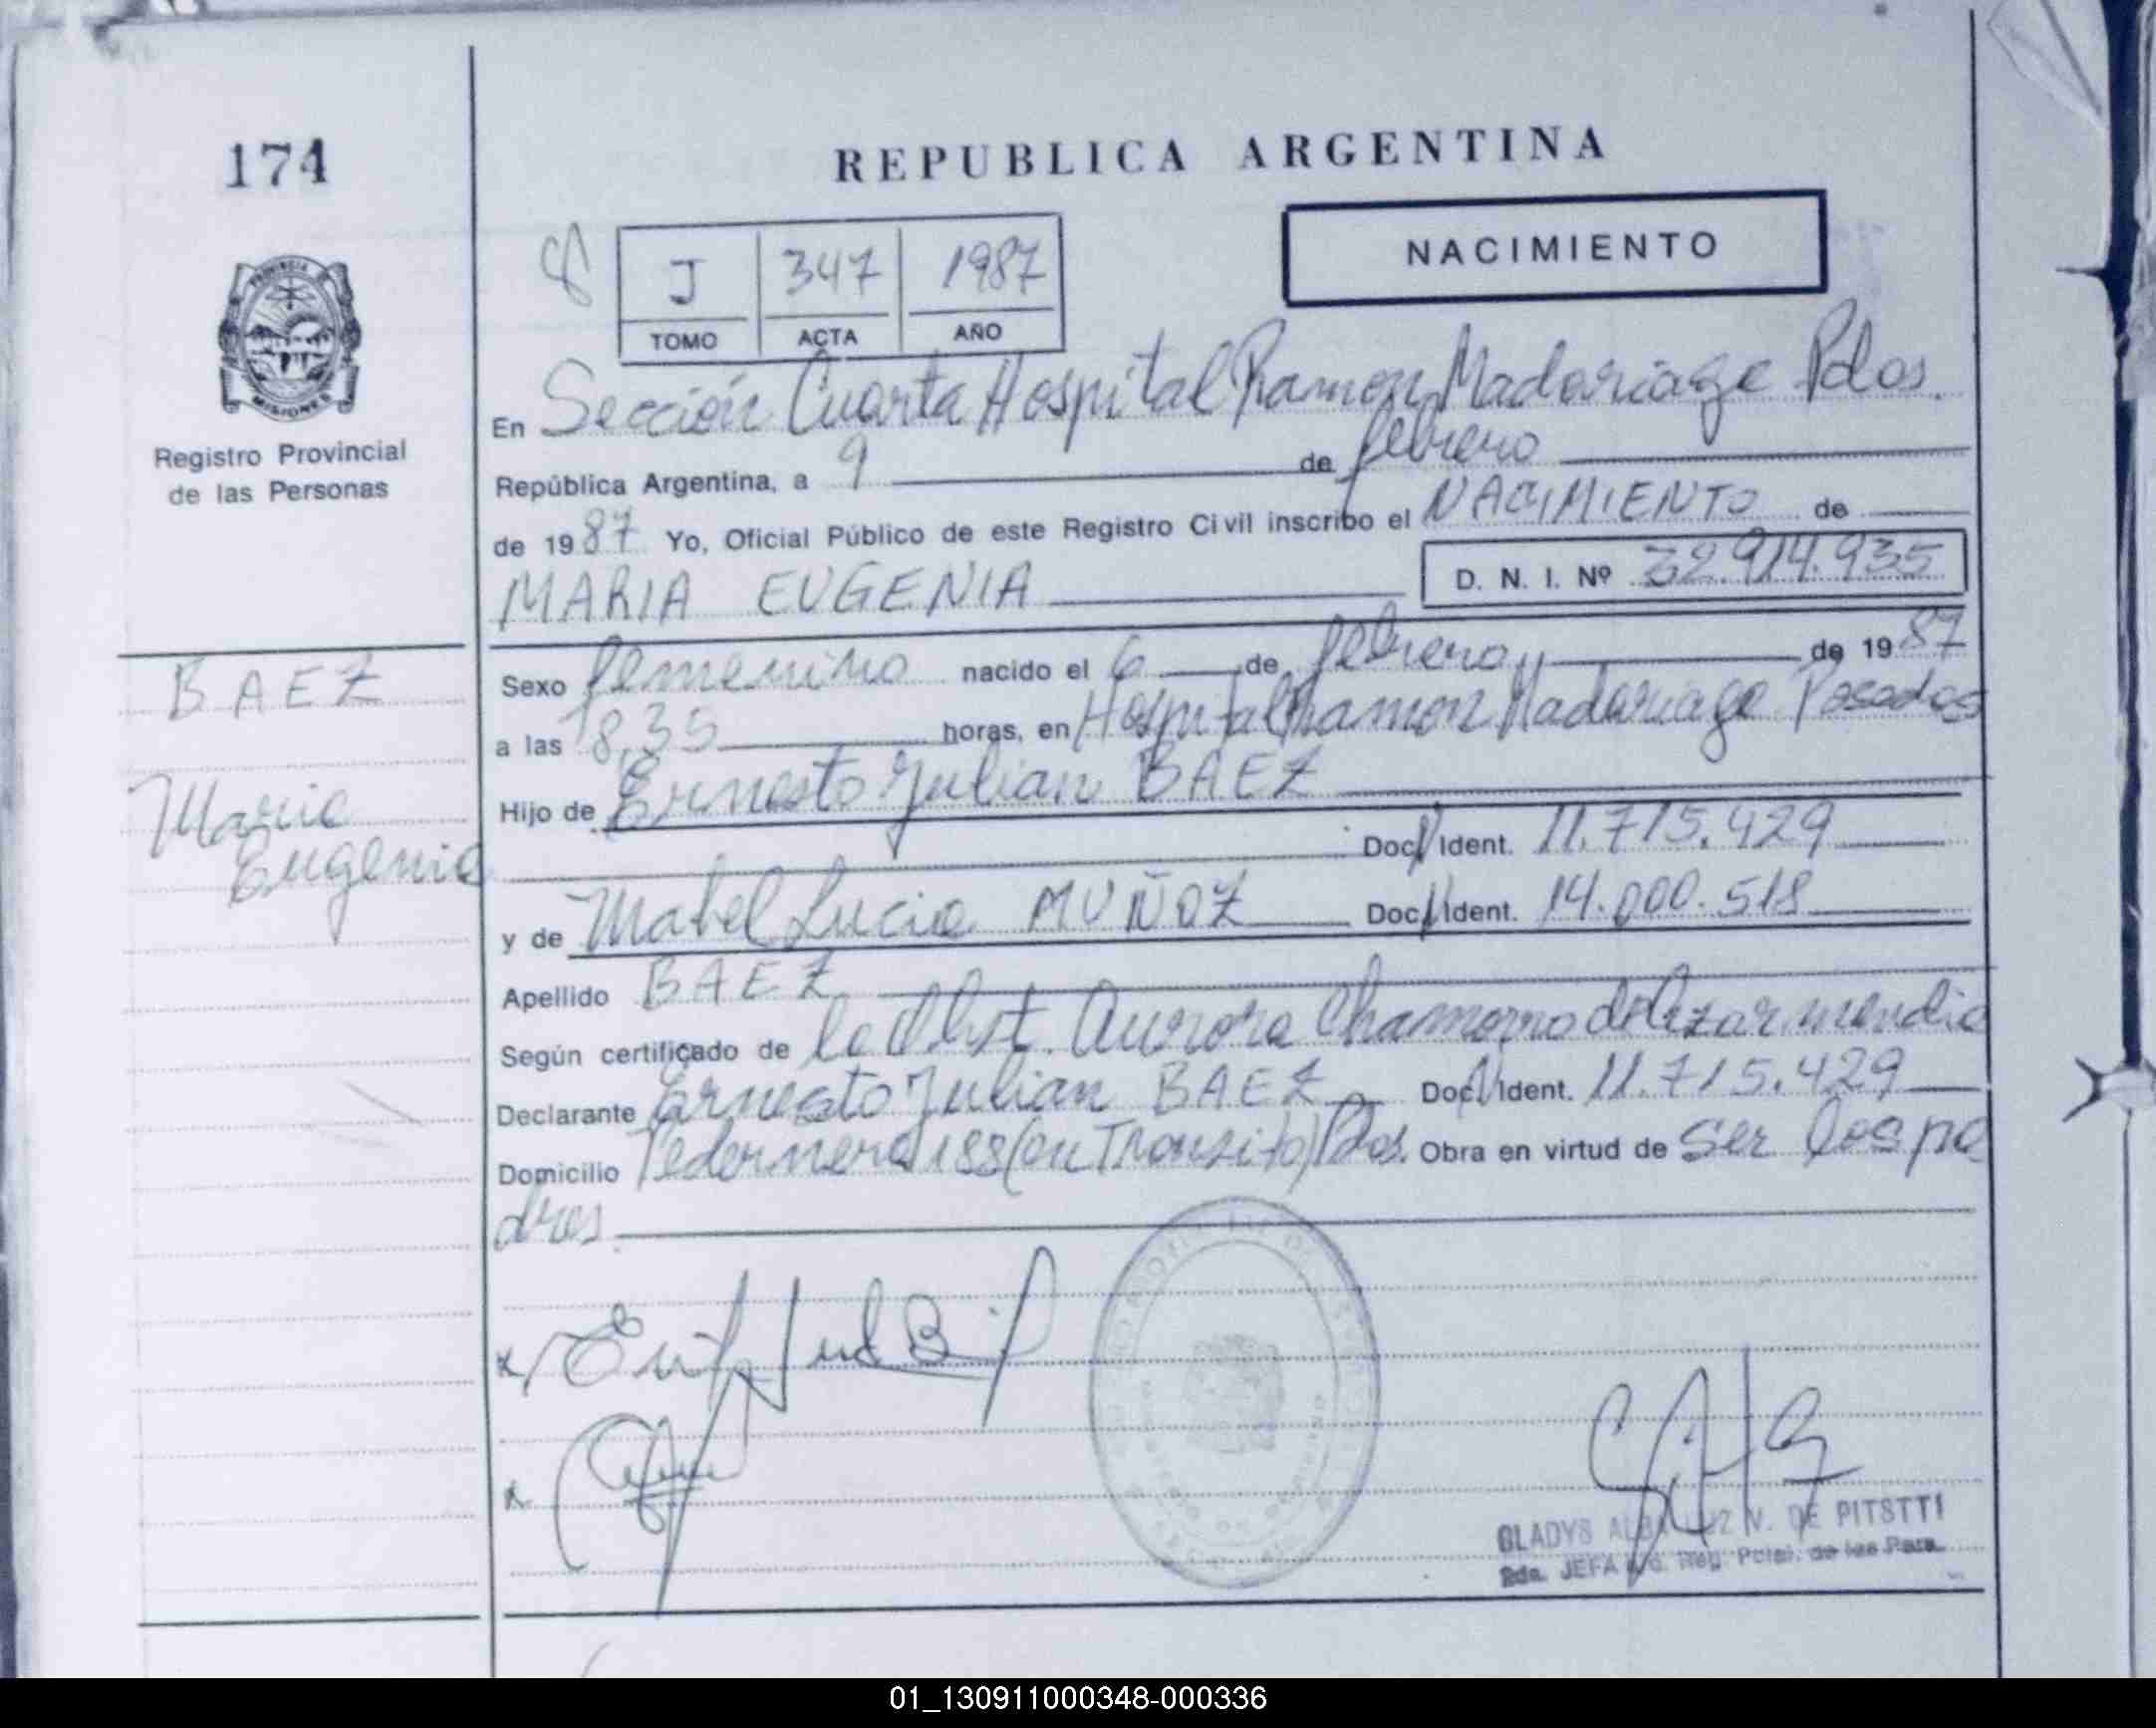 174
REPUBLICA ARGENTINA
NACIMIENTO
J 347 1987
TOMO ACTA AÑO
PROVINCIA DE
MISIONES
Registro Provincial
de las Personas
En Sección Cuarta Hospital Ramon Madariaga Pdas.
República Argentina, a 9 de febrero
de 1987 Yo, Oficial Público de este Registro Civil inscribo el NACIMIENTO de
MARIA EUGENIA D. N. I. Nº 32.914.935
BAEZ
Maria
Eugenia
Sexo femenino nacido el 6 de febrero de 1987
a las 18,35 horas, en Hospital Ramon Madariaga Posadas
Hijo de Ernesto Julian BAEZ
Doc. Ident. 11.715.429
y de Mabel Lucia MUÑOZ Doc. Ident. 14.000.518
Apellido BAEZ
Según certificado de la Obst. Aurora Chamorro de Lizarmendia
Declarante Ernesto Julian BAEZ Doc. Ident. 11.715.429
Domicilio Pedernera 188 (en Transito) Pdas. Obra en virtud de ser los pa
dres.
GLADYS V. DE PITSTTI
JEFA de las Pers.
01_130911000348-000336